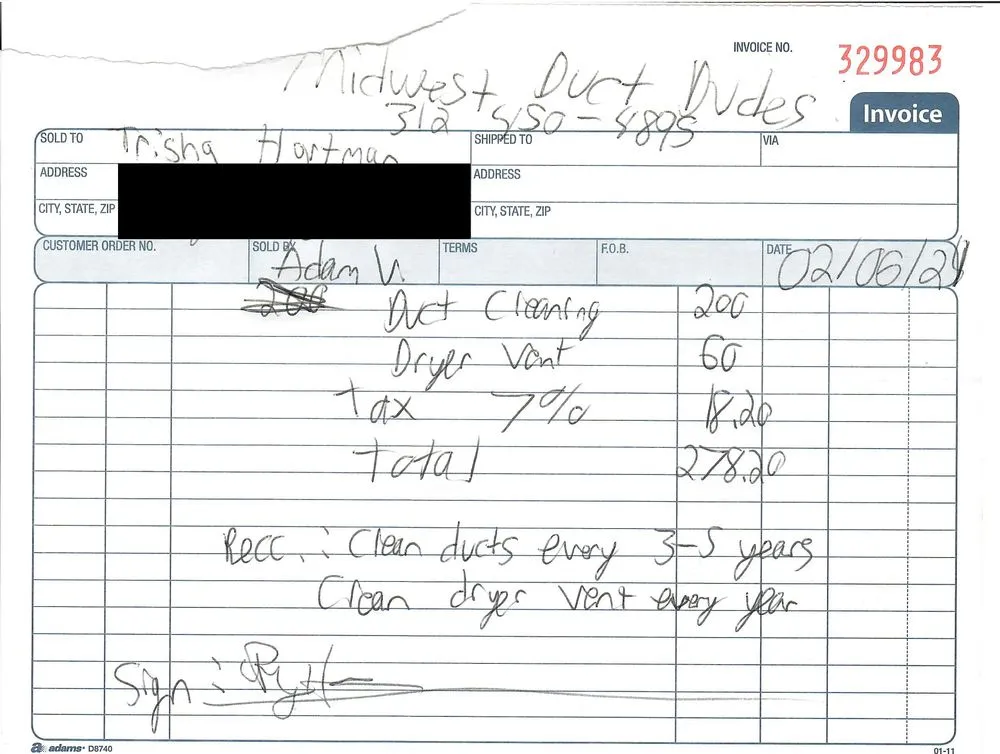 INVOICE NO. 329983
Midwest Duct Dudes
312 450-4895
Invoice
SOLD TO Trisha Hartman
SHIPPED TO
VIA
ADDRESS
ADDRESS
CITY, STATE, ZIP
CITY, STATE, ZIP
CUSTOMER ORDER NO.
SOLD BY Adam V.
TERMS
F.O.B.
DATE 02/06/24
Duct Cleaning 200
Dryer Vent 60
Tax 7% 18.20
Total 278.20
Recc.: Clean ducts every 3-5 years
Clean dryer vent every year
Sign:
adams D8740
01-11